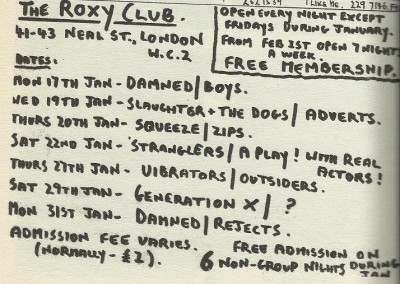 THE ROXY CLUB.
41-43 NEAL ST., LONDON
W.C.2
OPEN EVERY NIGHT EXCEPT
FRIDAYS DURING JANUARY.
FROM FEB 1ST OPEN 7 NIGHTS
A WEEK.
FREE MEMBERSHIP.
DATES:
MON 17TH JAN - DAMNED / BOYS.
WED 19TH JAN - SLAUGHTER + THE DOGS / ADVERTS.
THURS 20TH JAN - SQUEEZE / ZIPS.
SAT 22ND JAN - STRANGLERS / A PLAY! WITH REAL
ACTORS!
THURS 27TH JAN - VIBRATORS / OUTSIDERS.
SAT 29TH JAN - GENERATION X / ?
MON 31ST JAN - DAMNED / REJECTS.
ADMISSION FEE VARIES.
(NORMALLY - £1).
FREE ADMISSION ON
6 NON-GROUP NIGHTS DURING
JAN